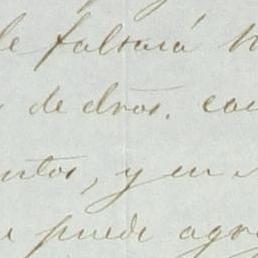 le faltará
de dros. con
ntos, y en
puede agre